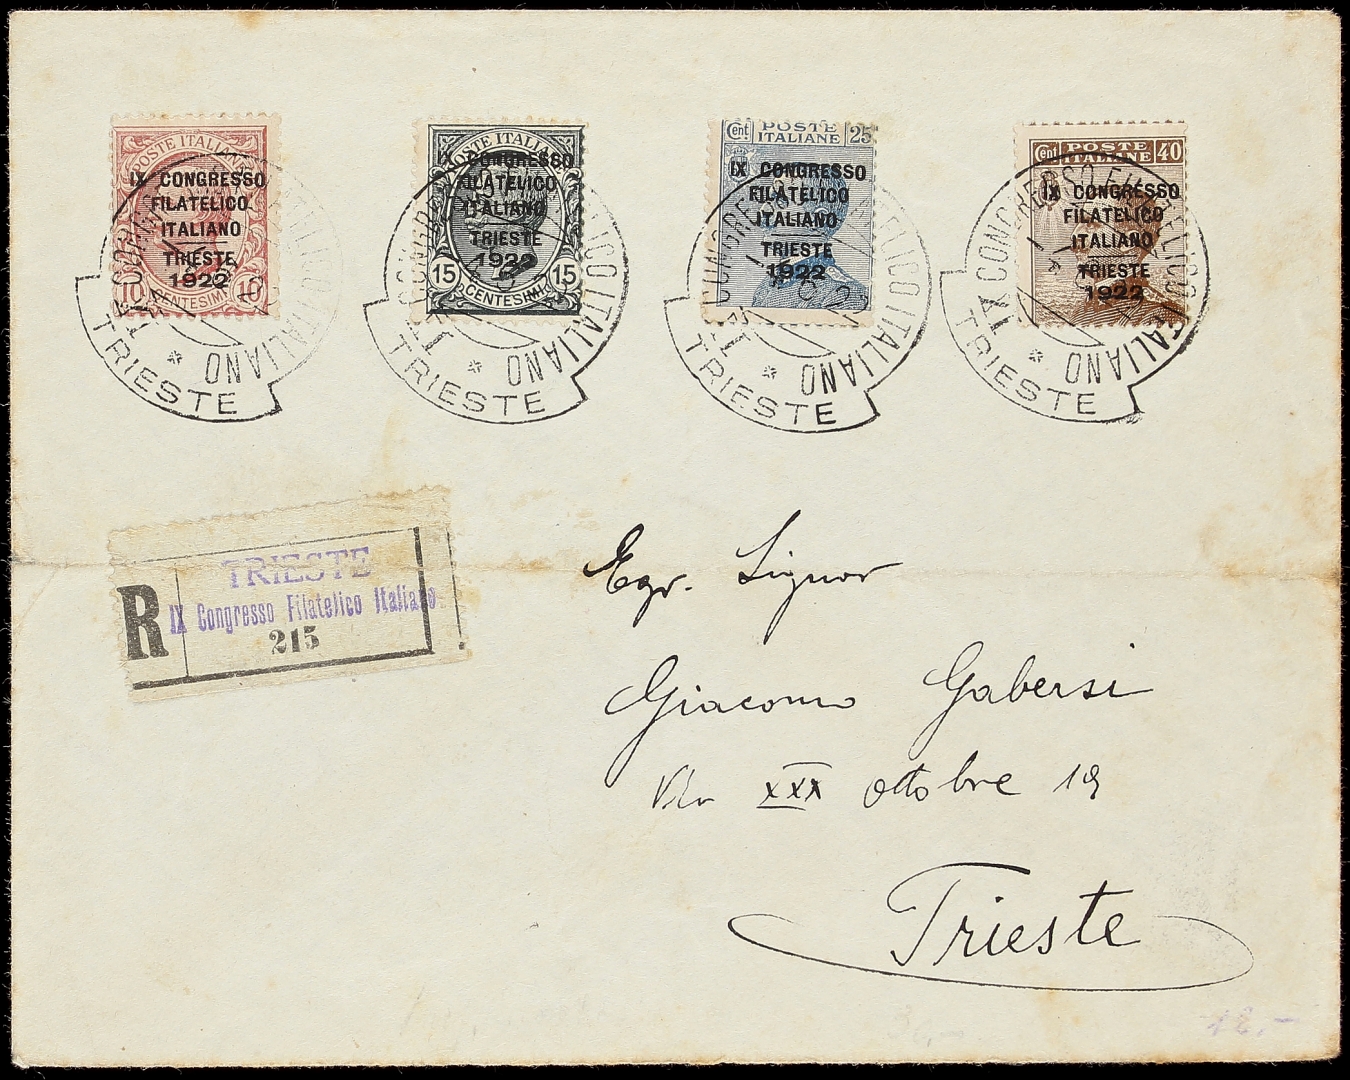 POSTE ITALIANE
IX CONGRESSO
FILATELICO
ITALIANO
TRIESTE
1922
10 CENTESIMI 10
POSTE ITALIANE
IX CONGRESSO
FILATELICO
ITALIANO
TRIESTE
1922
15 CENTESIMI 15
Cent POSTE ITALIANE 25
IX CONGRESSO
FILATELICO
ITALIANO
TRIESTE
1922
Cent POSTE ITALIANE 40
IX CONGRESSO
FILATELICO
ITALIANO
TRIESTE
1922
IX CONGRESSO FILATELICO ITALIANO
TRIESTE
IX CONGRESSO FILATELICO ITALIANO
TRIESTE
IX CONGRESSO FILATELICO ITALIANO
TRIESTE
IX CONGRESSO FILATELICO ITALIANO
TRIESTE
R
TRIESTE
IX Congresso Filatelico Italiano
215
Egr. Signor
Giacomo Gabersi
Via XXX Ottobre 19
Trieste
12,-